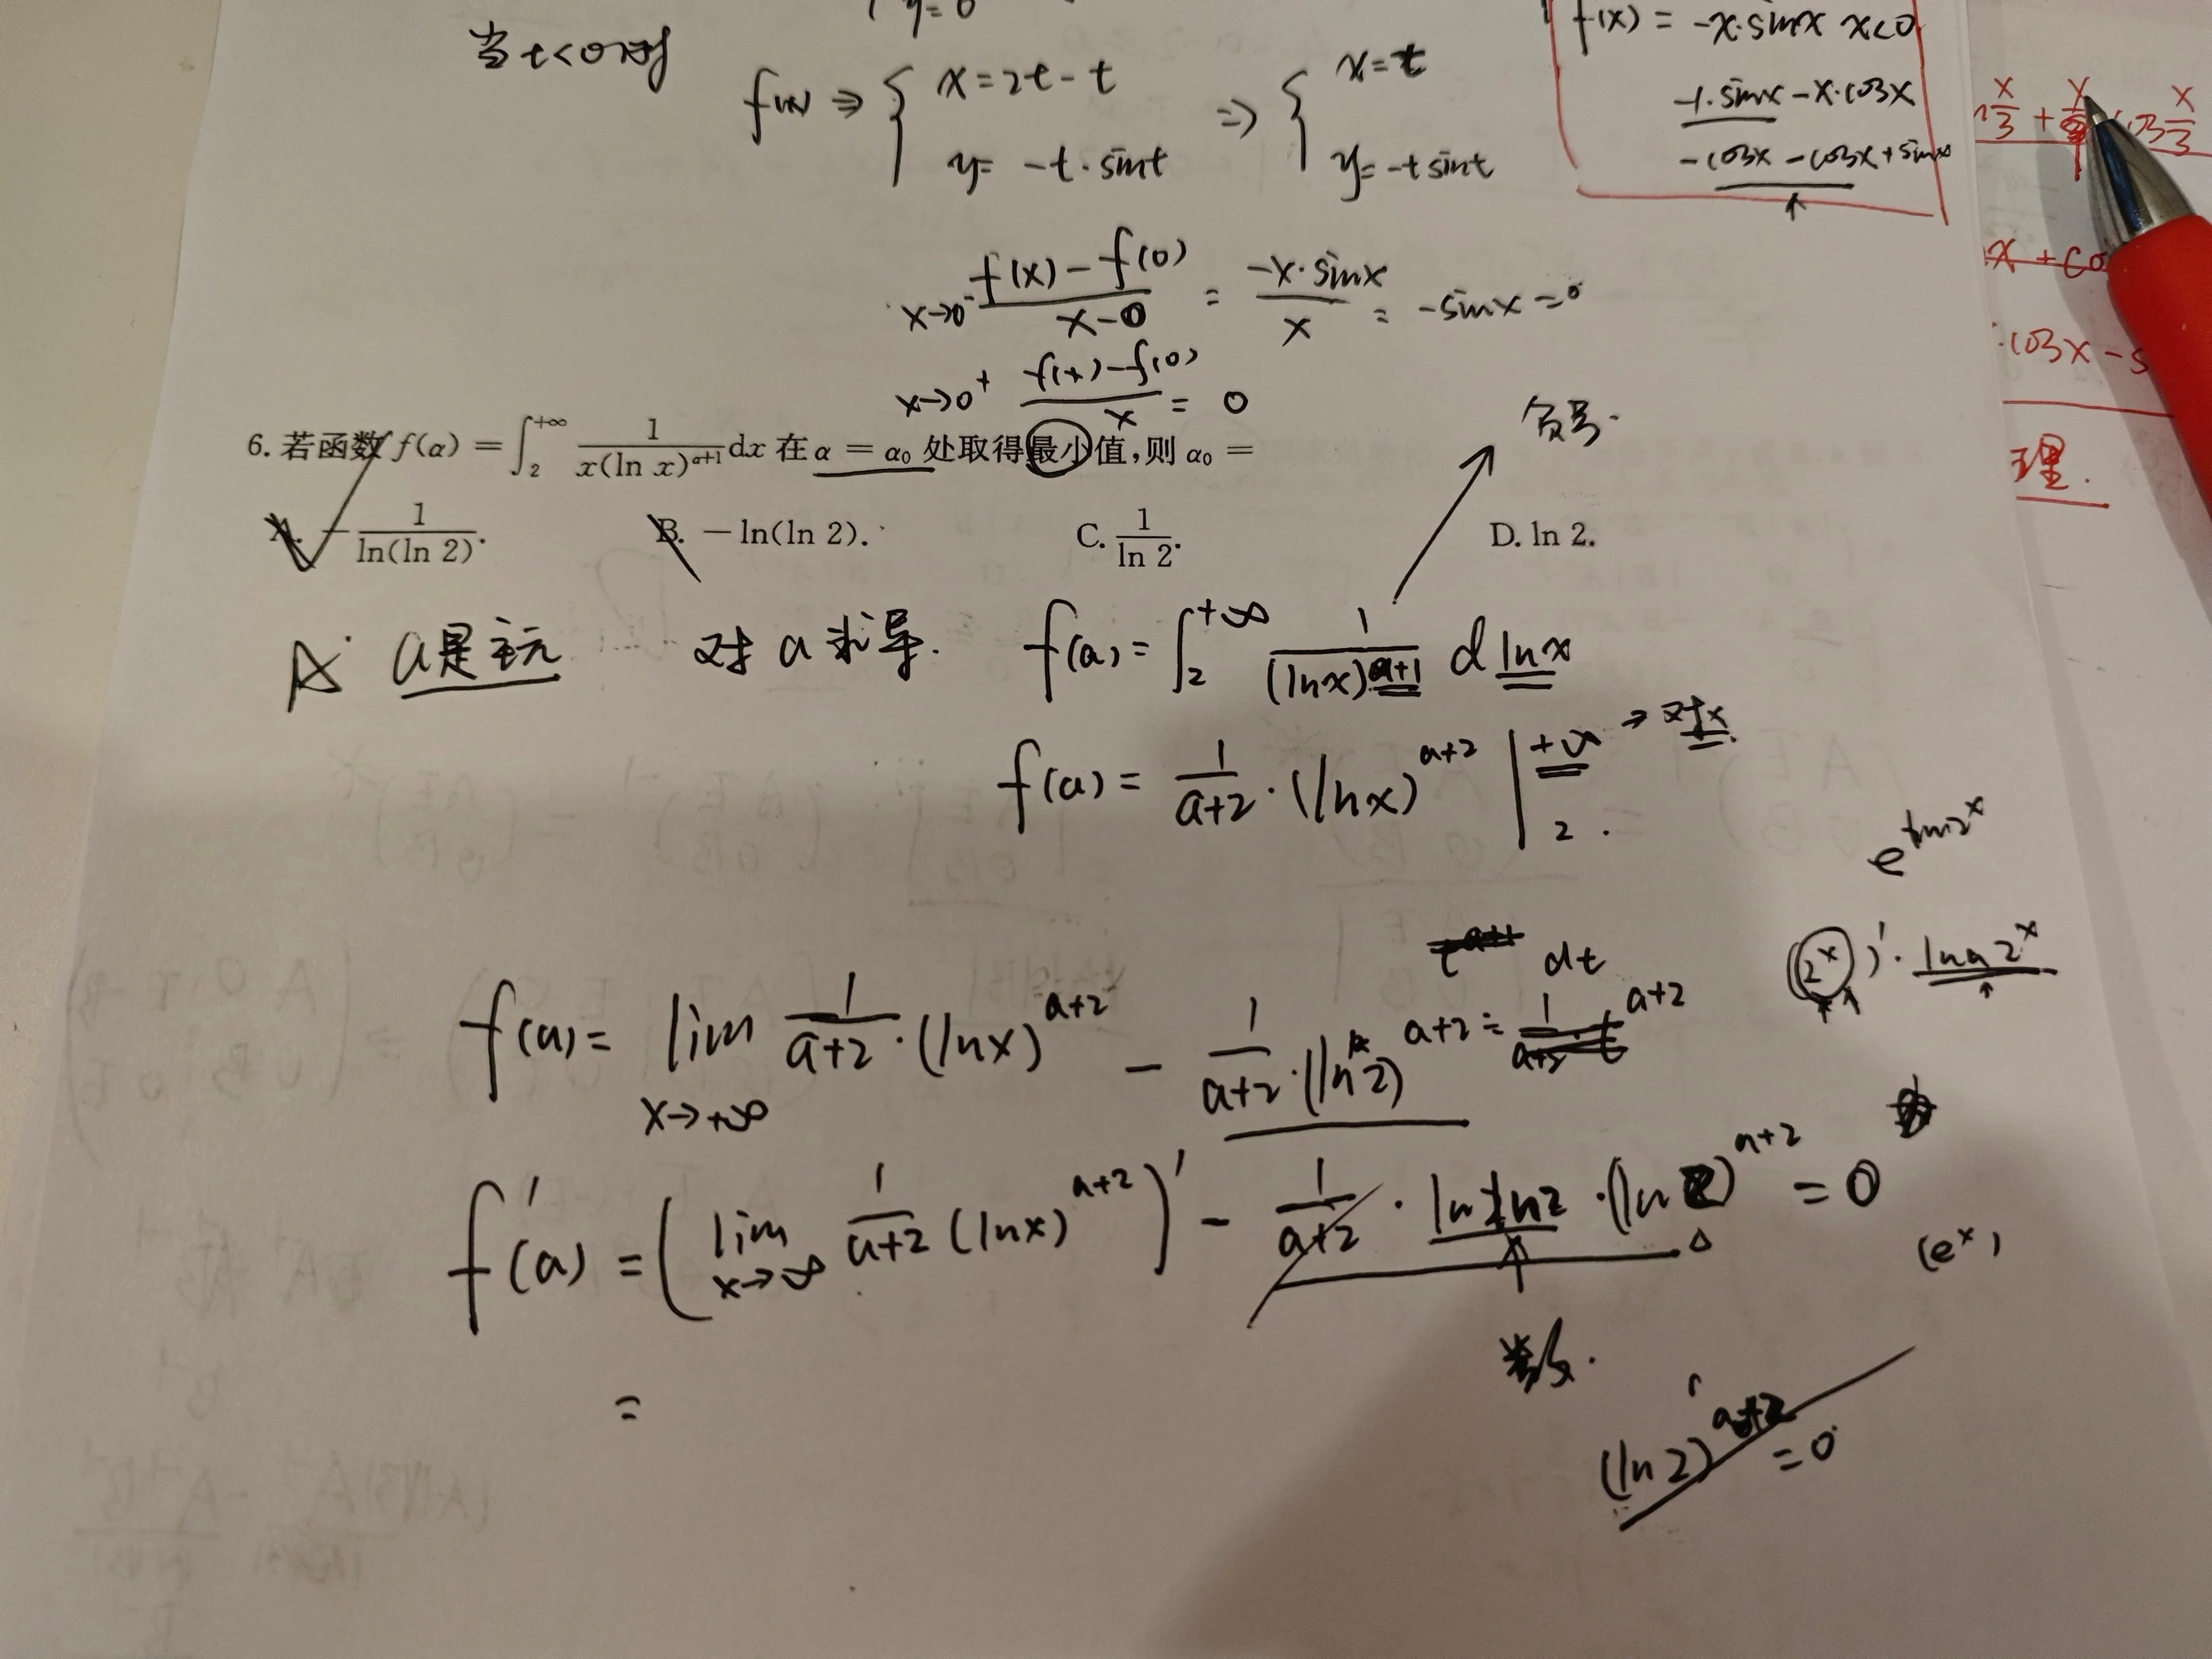 y=0
当t<0时
f(x) ⇒ { x=2t-t ⇒ { x=t
y= -t·sint y=-tsint
f(x) = -x·sinx x<0
-1·sinx-x·cosx
-cosx-cosx+sinx
x/3 + cos x/3
x+co
·cosx-s
理.
x→0⁻ (f(x)-f(0))/(x-0) = (-x·sinx)/x = -sinx=0
x→0⁺ (f(x)-f(0))/x = 0
负号.
6. 若函数 f(α) = ∫₂^{+∞} 1/(x(ln x)^{α+1}) dx 在 α = α₀ 处取得最小值,则 α₀ =
A. -1/ln(ln 2). B. -ln(ln 2). C. 1/ln 2. D. ln 2.
A a是主元 对a求导. f(a)= ∫₂^{+∞} 1/(lnx)^{a+1} d lnx
f(a)= 1/(a+2)·(lnx)^{a+2} |₂^{+∞} → 对x
e^{ln2^x}
(2^x)'·lna2^x
t^{a+1} dt
f(a)= lim_{x→+∞} 1/(a+2)·(lnx)^{a+2} - 1/(a+2)·(ln2)^{a+2} = 1/(a+2) t^{a+2}
f'(a) = (lim_{x→∞} 1/(a+2) (lnx)^{a+2})' - 1/(a+2)·lnln2·(ln2)^{a+2} = 0
(e^x)
=
(ln2)^{a+2} =0